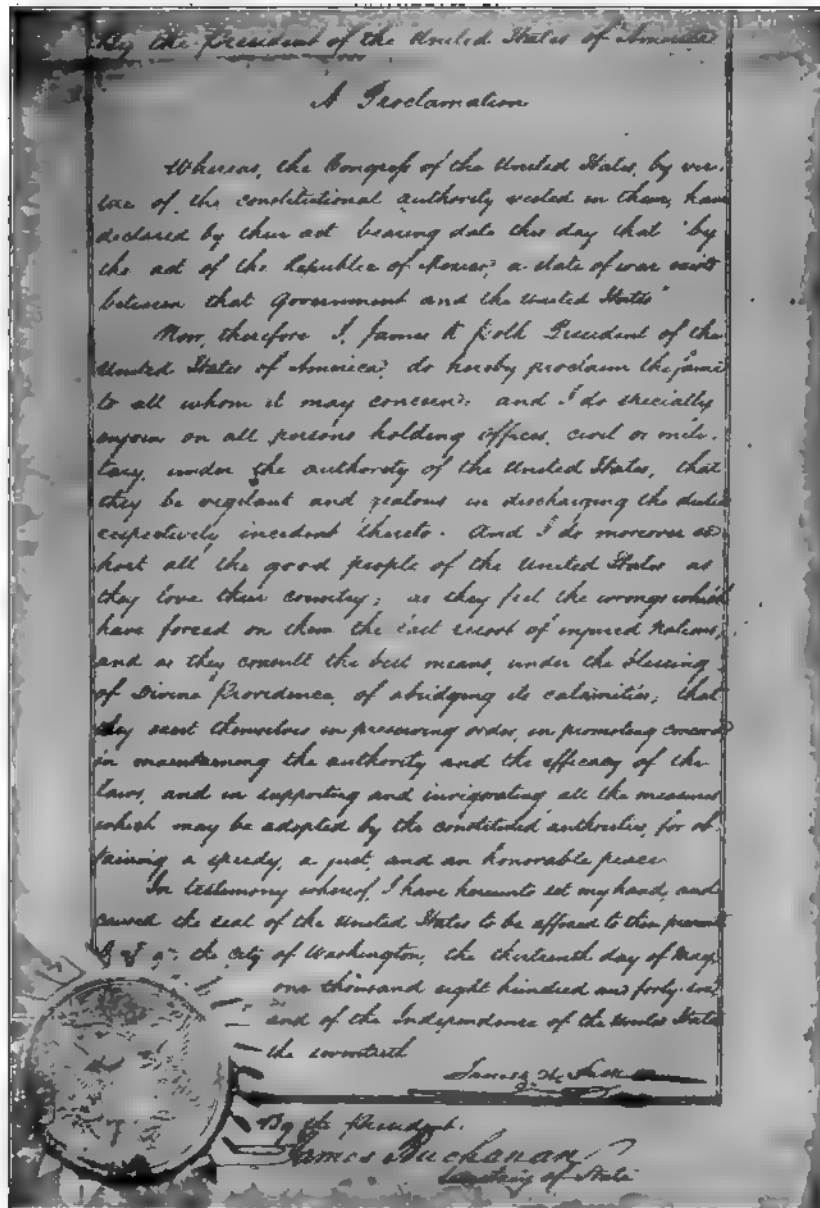 By the President of the United States of America
A Proclamation
Whereas, the Congress of the United States, by vir-
tue of the constitutional authority vested in them, have
declared by their act bearing date this day that "by
the act of the Republic of Mexico, a state of war exists
between that Government and the United States"
Now, therefore I, James K Polk President of the
United States of America, do hereby proclaim the same
to all whom it may concern: and I do specially
enjoin on all persons holding offices, civil or mili-
tary, under the authority of the United States, that
they be vigilant and zealous in discharging the duties
respectively incident thereto. And I do moreover ex-
hort all the good people of the United States as
they love their country; as they feel the wrongs which
have forced on them the last resort of injured nations,
and as they consult the best means, under the blessing
of Divine Providence, of abridging its calamities; that
they exert themselves in preserving order, in promoting concord
in maintaining the authority and the efficacy of the
laws, and in supporting and invigorating all the measures
which may be adopted by the constituted authorities, for ob-
taining a speedy, a just, and an honorable peace
In testimony whereof, I have hereunto set my hand, and
caused the seal of the United States to be affixed to these presents
the city of Washington, the thirteenth day of May
one thousand eight hundred and forty six
and of the Independence of the United States
the seventieth
James K. Polk
By the President.
James Buchanan
Secretary of State